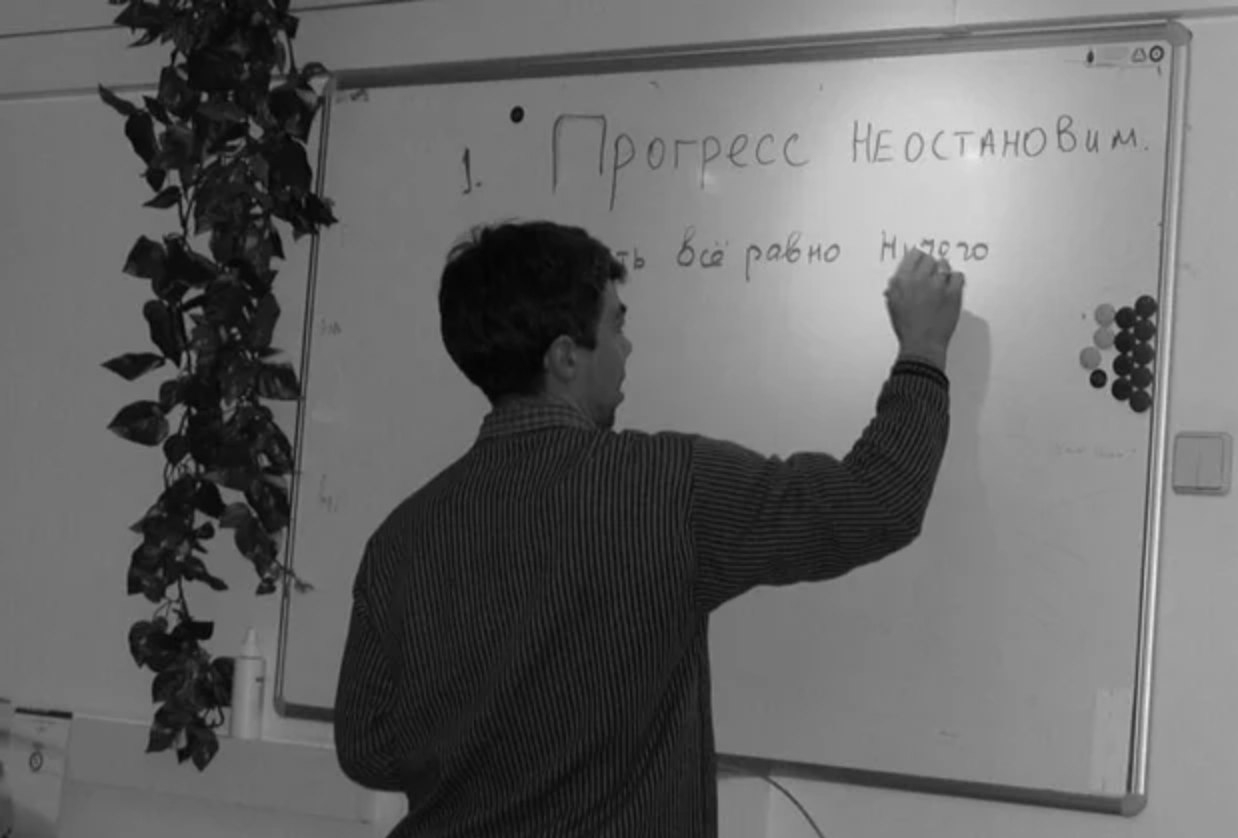 1. Прогресс НЕОСТАНОВИМ.
всё равно Ничего